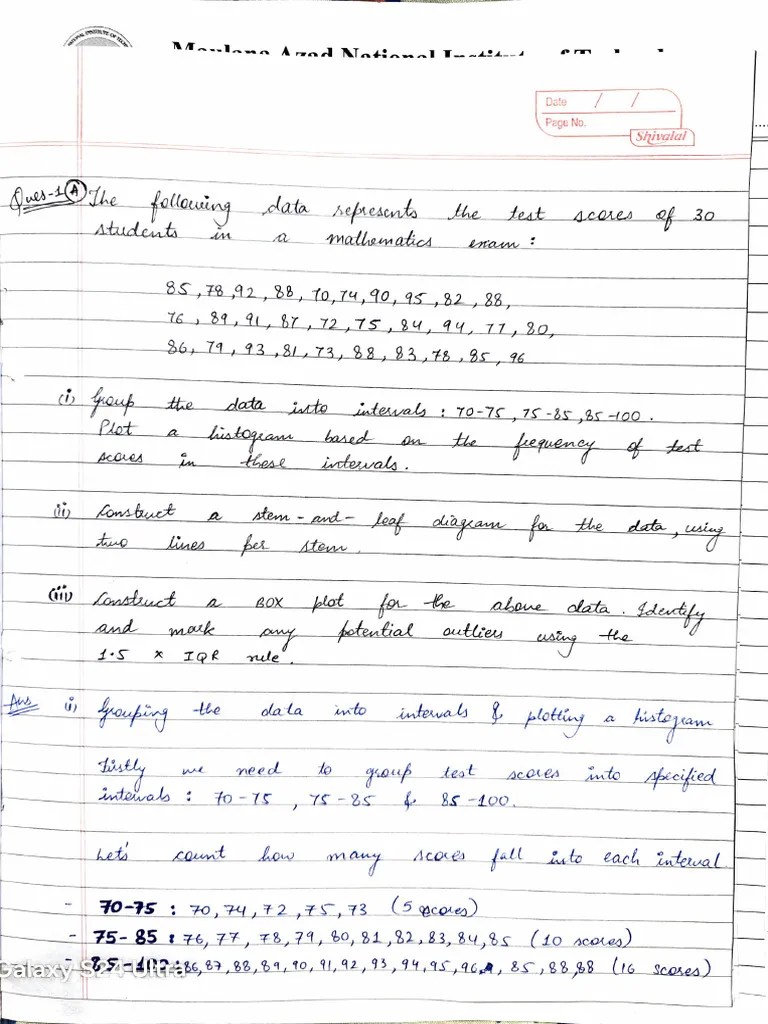 Maulana Azad National Institute of Technology
Date / /
Page No.
Shivalal
Ques-1 (A) The following data represents the test scores of 30
students in a mathematics exam :
85, 78, 92, 88, 70, 74, 90, 95, 82, 88,
76, 89, 91, 87, 72, 75, 84, 94, 77, 80,
86, 79, 93, 81, 73, 88, 83, 78, 85, 96
(i) Group the data into intervals : 70-75, 75-85, 85-100.
Plot a histogram based on the frequency of test
scores in these intervals.
(ii) Construct a stem-and-leaf diagram for the data, using
two lines per stem.
(iii) Construct a BOX plot for the above data. Identify
and mark any potential outliers using the
1.5 x IQR rule.
Ans (i) Grouping the data into intervals & plotting a histogram
Firstly we need to group test scores into specified
intervals : 70-75, 75-85 & 85-100.
Let's count how many scores fall into each interval
- 70-75 : 70, 74, 72, 75, 73 (5 scores)
- 75-85 : 76, 77, 78, 79, 80, 81, 82, 83, 84, 85 (10 scores)
- 85-100 : 86, 87, 88, 89, 90, 91, 92, 93, 94, 95, 96, 85, 88, 88 (16 scores)
Galaxy S24 Ultra